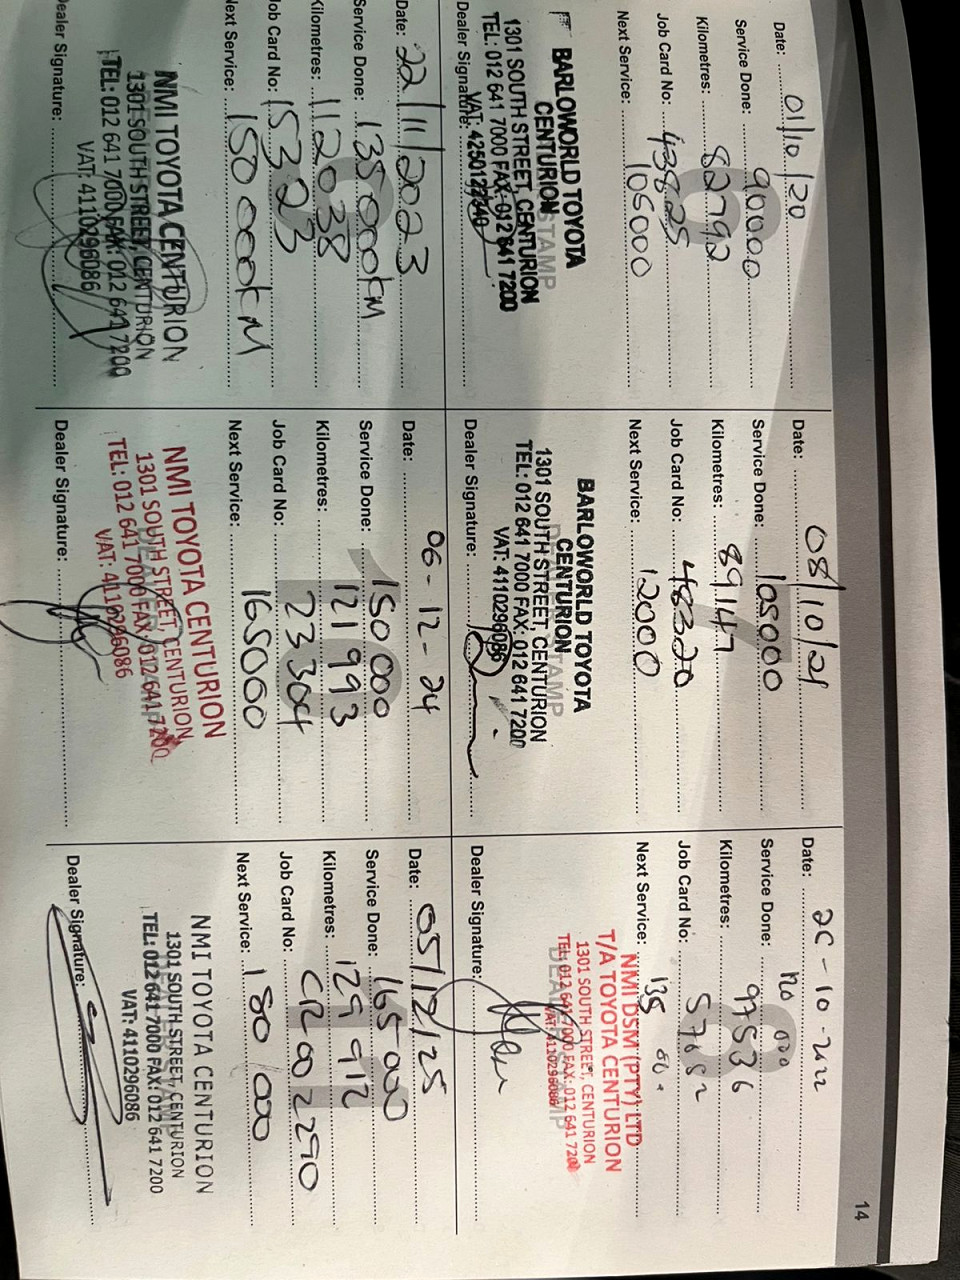 14
Date: 01/10/20
Service Done: 90000
Kilometres: 82792
Job Card No: 438825
Next Service: 105000
STAMP
BARLOWORLD TOYOTA
CENTURION
1301 SOUTH STREET, CENTURION
TEL: 012 641 7000 FAX: 012 641 7200
VAT: 4250122740
Dealer Signature:
Date: 08/10/21
Service Done: 105000
Kilometres: 89147
Job Card No: 48320
Next Service: 12000
BARLOWORLD TOYOTA
CENTURION
1301 SOUTH STREET, CENTURION
TEL: 012 641 7000 FAX: 012 641 7200
VAT: 4110296086
Dealer Signature:
Date: 20-10-2022
Service Done: 120 000
Kilometres: 97536
Job Card No: 57682
Next Service: 135
NMI DSM (PTY) LTD
T/A TOYOTA CENTURION
1301 SOUTH STREET, CENTURION
TEL: 012 641 7000 FAX: 012 641 7200
VAT: 4110296086
Dealer Signature:
Date: 22/11/2023
Service Done: 135000KM
Kilometres: 112038
Job Card No: 15323
Next Service: 150000KM
NMI TOYOTA CENTURION
1301 SOUTH STREET, CENTURION
TEL: 012 641 7000 FAX: 012 641 7200
VAT: 4110296086
Dealer Signature:
Date: 06-12-24
Service Done: 150 000
Kilometres: 121993
Job Card No: 23304
Next Service: 165000
10
NMI TOYOTA CENTURION
1301 SOUTH STREET, CENTURION
TEL: 012 641 7000 FAX: 012 641 7200
VAT: 4110296086
Dealer Signature:
Date: 05/12/25
Service Done: 165 000
Kilometres: 129912
Job Card No: CR200290
Next Service: 180 000
11
NMI TOYOTA CENTURION
1301 SOUTH STREET, CENTURION
TEL: 012 641 7000 FAX: 012 641 7200
VAT: 4110296086
Dealer Signature: